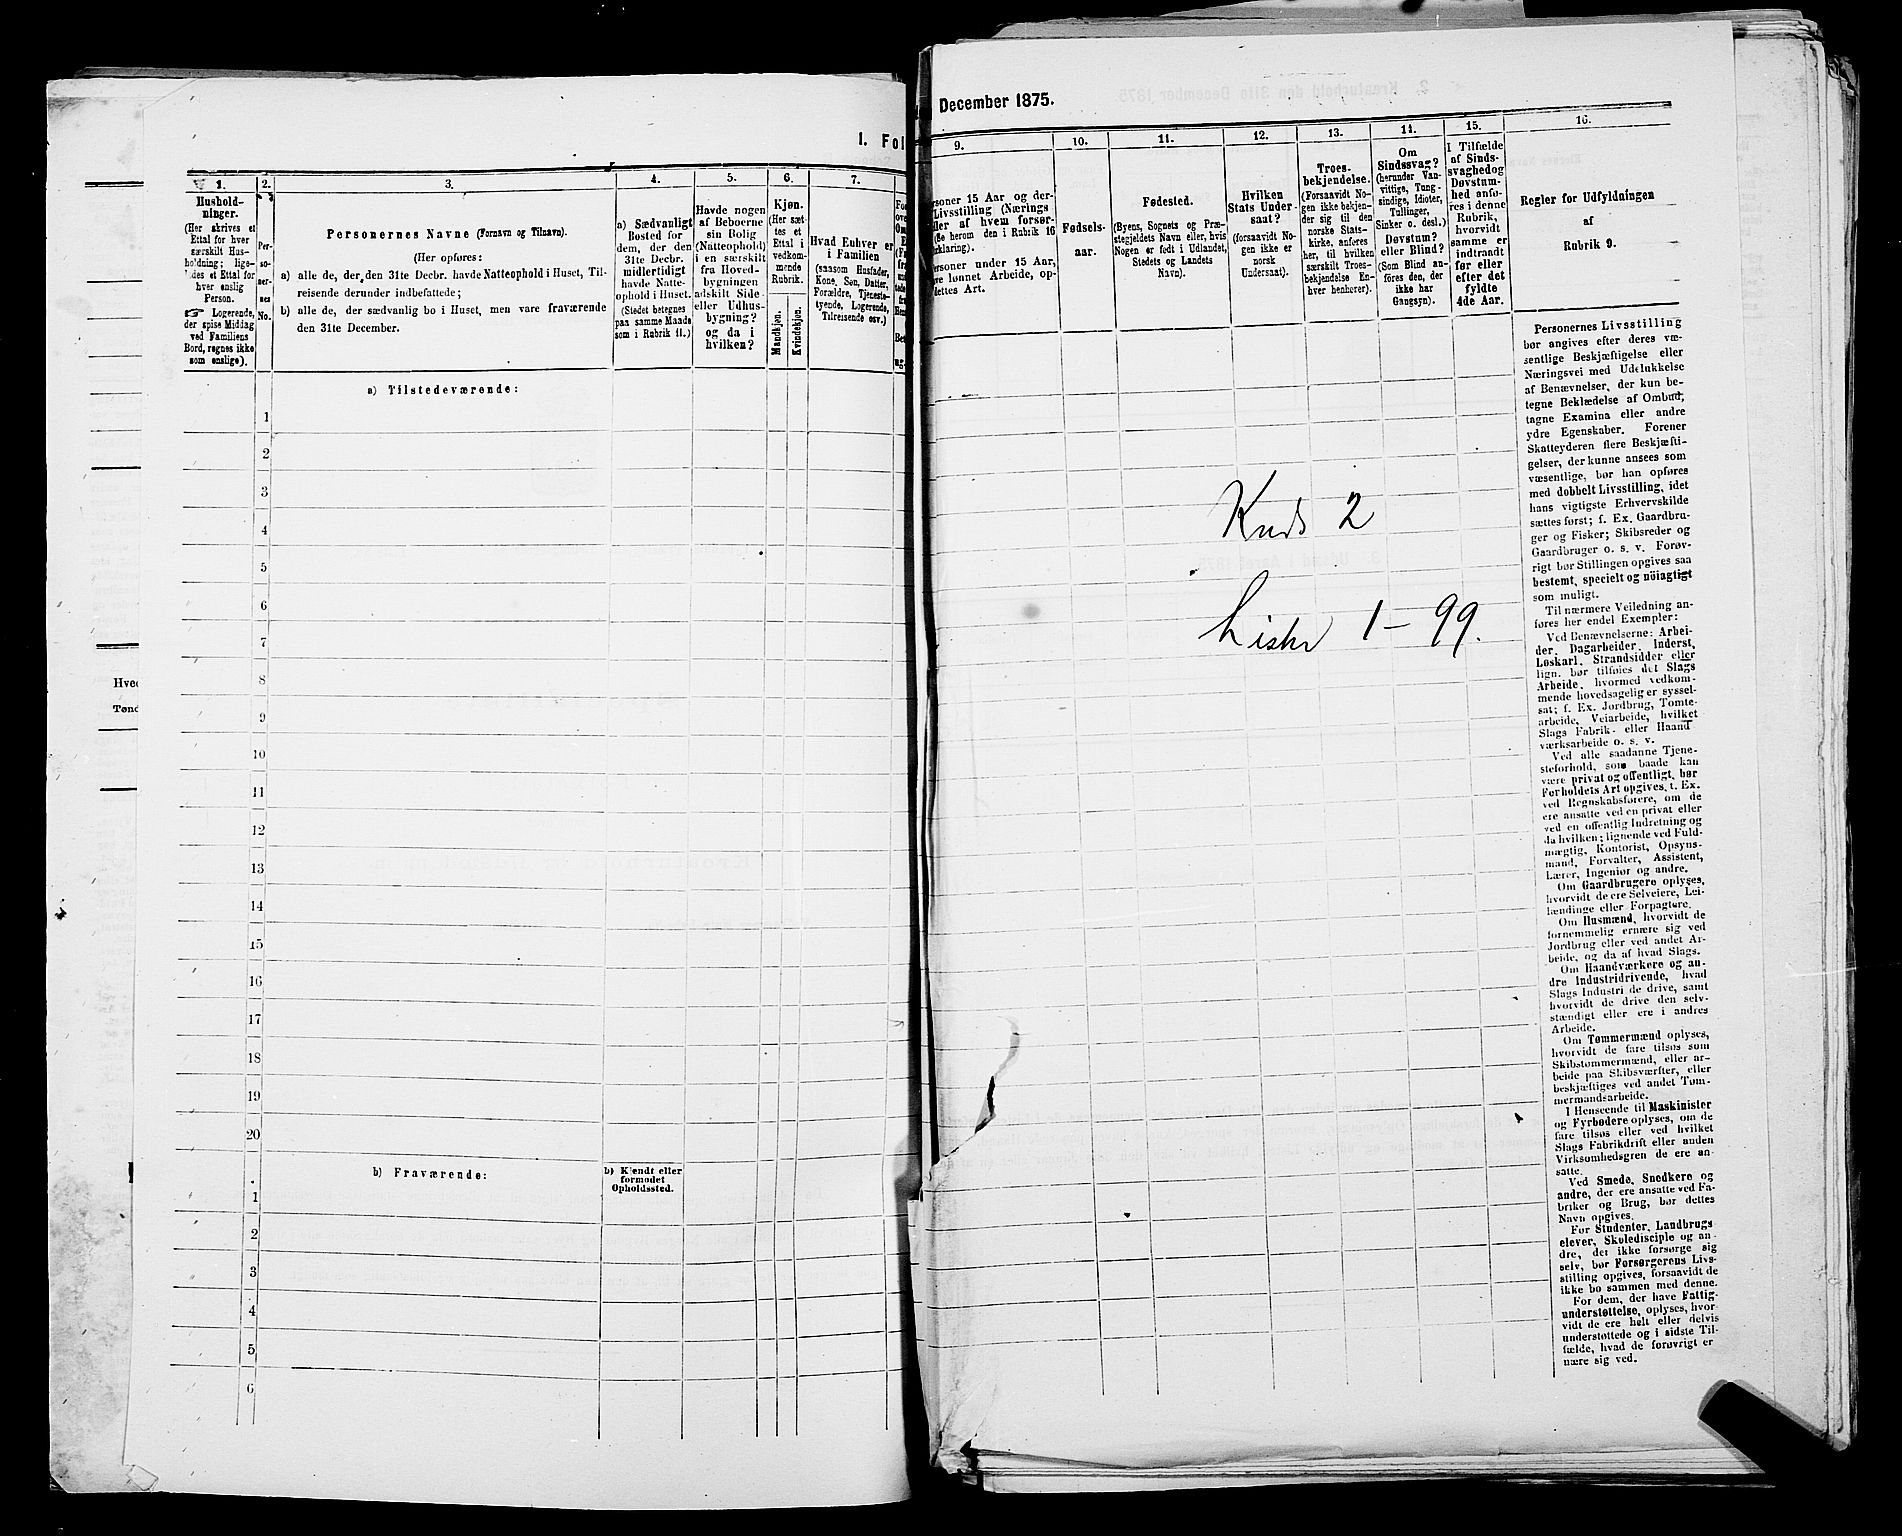 Hved
Tønd
1. Fol
1.
2.
3.
4.
5.
6.
7.
Hushold-
ninger.
(Her skrives et
Ettal for hver
særskilt Hus-
holdning; lige-
ledes et Ettal for
hver enslig
Person.
☞ Logerende,
der spise Middag
ved Familiens
Bord, regnes ikke
som enslige).
Per-
so-
ner-
nes
No.
Personernes Navne (Fornavn og Tilnavn).
(Her opføres:
a) alle de, der den 31te Decbr. havde Natteophold i Huset, Til-
reisende derunder indbefattede;
b) alle de, der sædvanlig bo i Huset, men vare fraværende
den 31te December.
a) Sædvanligt
Bosted for
dem, der den
31te Decbr.
midlertidigt
havde Natte-
ophold i Huset.
(Stedet betegnes
paa samme Maade
som i Rubrik 11.)
Havde nogen
af Beboerne
sin Bolig
(Natteophold)
i en særskilt
fra Hoved-
bygningen
adskilt Side-
eller Udhus-
bygning?
og da i
hvilken?
Kjøn.
(Her sæt-
tes et
Ettal i
vedkom-
mende
Rubrik.
Mandkjøn.
Kvindekjøn.
Hvad Enhver er
i Familien
(saasom Husfader,
Kone, Søn, Datter,
Forældre, Tjeneste-
tyende, Logerende,
Tilreisende osv.)
a) Tilstedeværende:
1
2
3
4
5
6
7
8
9
10
11
12
13
14
15
16
17
18
19
20
b) Fraværende:
b) Kjendt eller
formodet
Opholdssted.
1
2
3
4
5
6
December 1875.
9.
10.
11.
12.
13.
14.
15.
16.
ersoner 15 Aar og der-
Livsstilling (Nærings
ller af hvem forsør-
(Se herom den i Rubrik 16
rklaring).
ersoner under 15 Aar,
ve lønnet Arbeide, op-
dettes Art.
Fødsels-
aar.
Fødested.
(Byens, Sognets og Præ-
stegjeldets Navn eller, hvis
Nogen er født i Udlandet,
Stedets og Landets
Navn).
Hvilken
Stats Under-
saat?
(forsaavidt No-
gen ikke er
norsk
Undersaat).
Troes-
bekjendelse.
(Forsaavidt No-
gen ikke bekjen-
der sig til den
norske Stats-
kirke, anføres
her, til hvilken
særskilt Troes-
bekjendelse En-
hver henhører).
Om
Sindssvag?
(herunder Van-
vittige, Tung-
sindige, Idioter,
Tullinger,
Sinker o. desl.)
Døvstum?
eller Blind?
(Som Blind an-
føres den, der
ikke har
Gangsyn).
I Tilfælde
af Sinds-
svaghed og
Døvstum-
hed anfø-
res i denne
Rubrik,
hvorvidt
samme er
indtraadt
før eller
efter det
fyldte
4de Aar.
Regler for Udfyldningen
af
Rubrik 9.
Personernes Livsstilling
bør angives efter deres væ-
sentlige Beskjæftigelse eller
Næringsvei med Udelukkelse
af Benævnelser, der kun be-
tegne Beklædelse af Ombud,
tagne Examina eller andre
ydre Egenskaber. Forener
Skatteyderen flere Beskjæfti-
gelser, der kunne ansees som
væsentlige, bør han opføres
med dobbelt Livsstilling, idet
hans vigtigste Erhvervskilde
sættes først; f. Ex. Gaardbru-
ger og Fisker; Skibsreder og
Gaardbruger o. s. v. Forøv-
rigt bør Stillingen opgives saa
bestemt, specielt og nöiagtigt
som muligt.
Til nærmere Veiledning an-
føres her endel Exempler:
Ved Benævnelserne: Arbei-
der, Dagarbeider, Inderst,
Løskarl, Strandsidder eller
lign. bør tilføies det Slags
Arbeide, hvormed vedkom-
mende hovedsagelig er syssel-
sat; f. Ex. Jordbrug, Tomte-
arbeide, Veiarbeide, hvilket
Slags Fabrik- eller Haand
værksarbeide o. s. v.
Ved alle saadanne Tjene-
steforhold, som baade kan
være privat og offentligt, bør
Forholdets Art opgives, t. Ex.
ved Regnskabsførere, om de
ere ansatte ved en privat eller
ved en offentlig Indretning og
da hvilken; lignende ved Fuld-
mægtig, Kontorist, Opsyns-
mand, Forvalter, Assistent,
Lærer, Ingeniør og andre.
Om Gaardbrugere oplyses,
hvorvidt de ere Selveiere, Lei-
lændinge eller Forpagtere.
Om Husmænd, hvorvidt de
fornemmelig ernære sig ved
Jordbrug eller ved andet Ar-
beide, og da af hvad Slags.
Om Haandværkere og an-
dre Industridrivende, hvad
Slags Industri de drive, samt
hvorvidt de drive den selv-
stændigt eller ere i andres
Arbeide.
Om Tømmermænd oplyses,
hvorvidt de fare tilsøs som
Skibstømmermænd, eller ar-
beide paa Skibsværfter, eller
beskjæftiges ved andet Tøm-
mermandsarbeide.
I Henseende til Maskinister
og Fyrbødere oplyses, om de
fare tilsøs eller ved hvilket
Slags Fabrikdrift eller anden
Virksomhedsgren de ere an-
satte.
Ved Smede, Snedkere og
andre, der ere ansatte ved Fa-
briker og Brug, bør dettes
Navn opgives.
For Studenter, Landbrugs
elever, Skoledisciple og an-
dre, det ikke forsørge sig
selv, bør Forsørgerens Livs-
stilling opgives, forsaavidt de
ikke bo sammen med denne.
For dem, der have Fattig-
understøttelse, oplyses, hvor-
vidt de ere helt eller delvis
understøttede og i sidste Til-
fælde, hvad de forøvrigt er
nære sig ved.
Kreds 2
Lister 1-99.